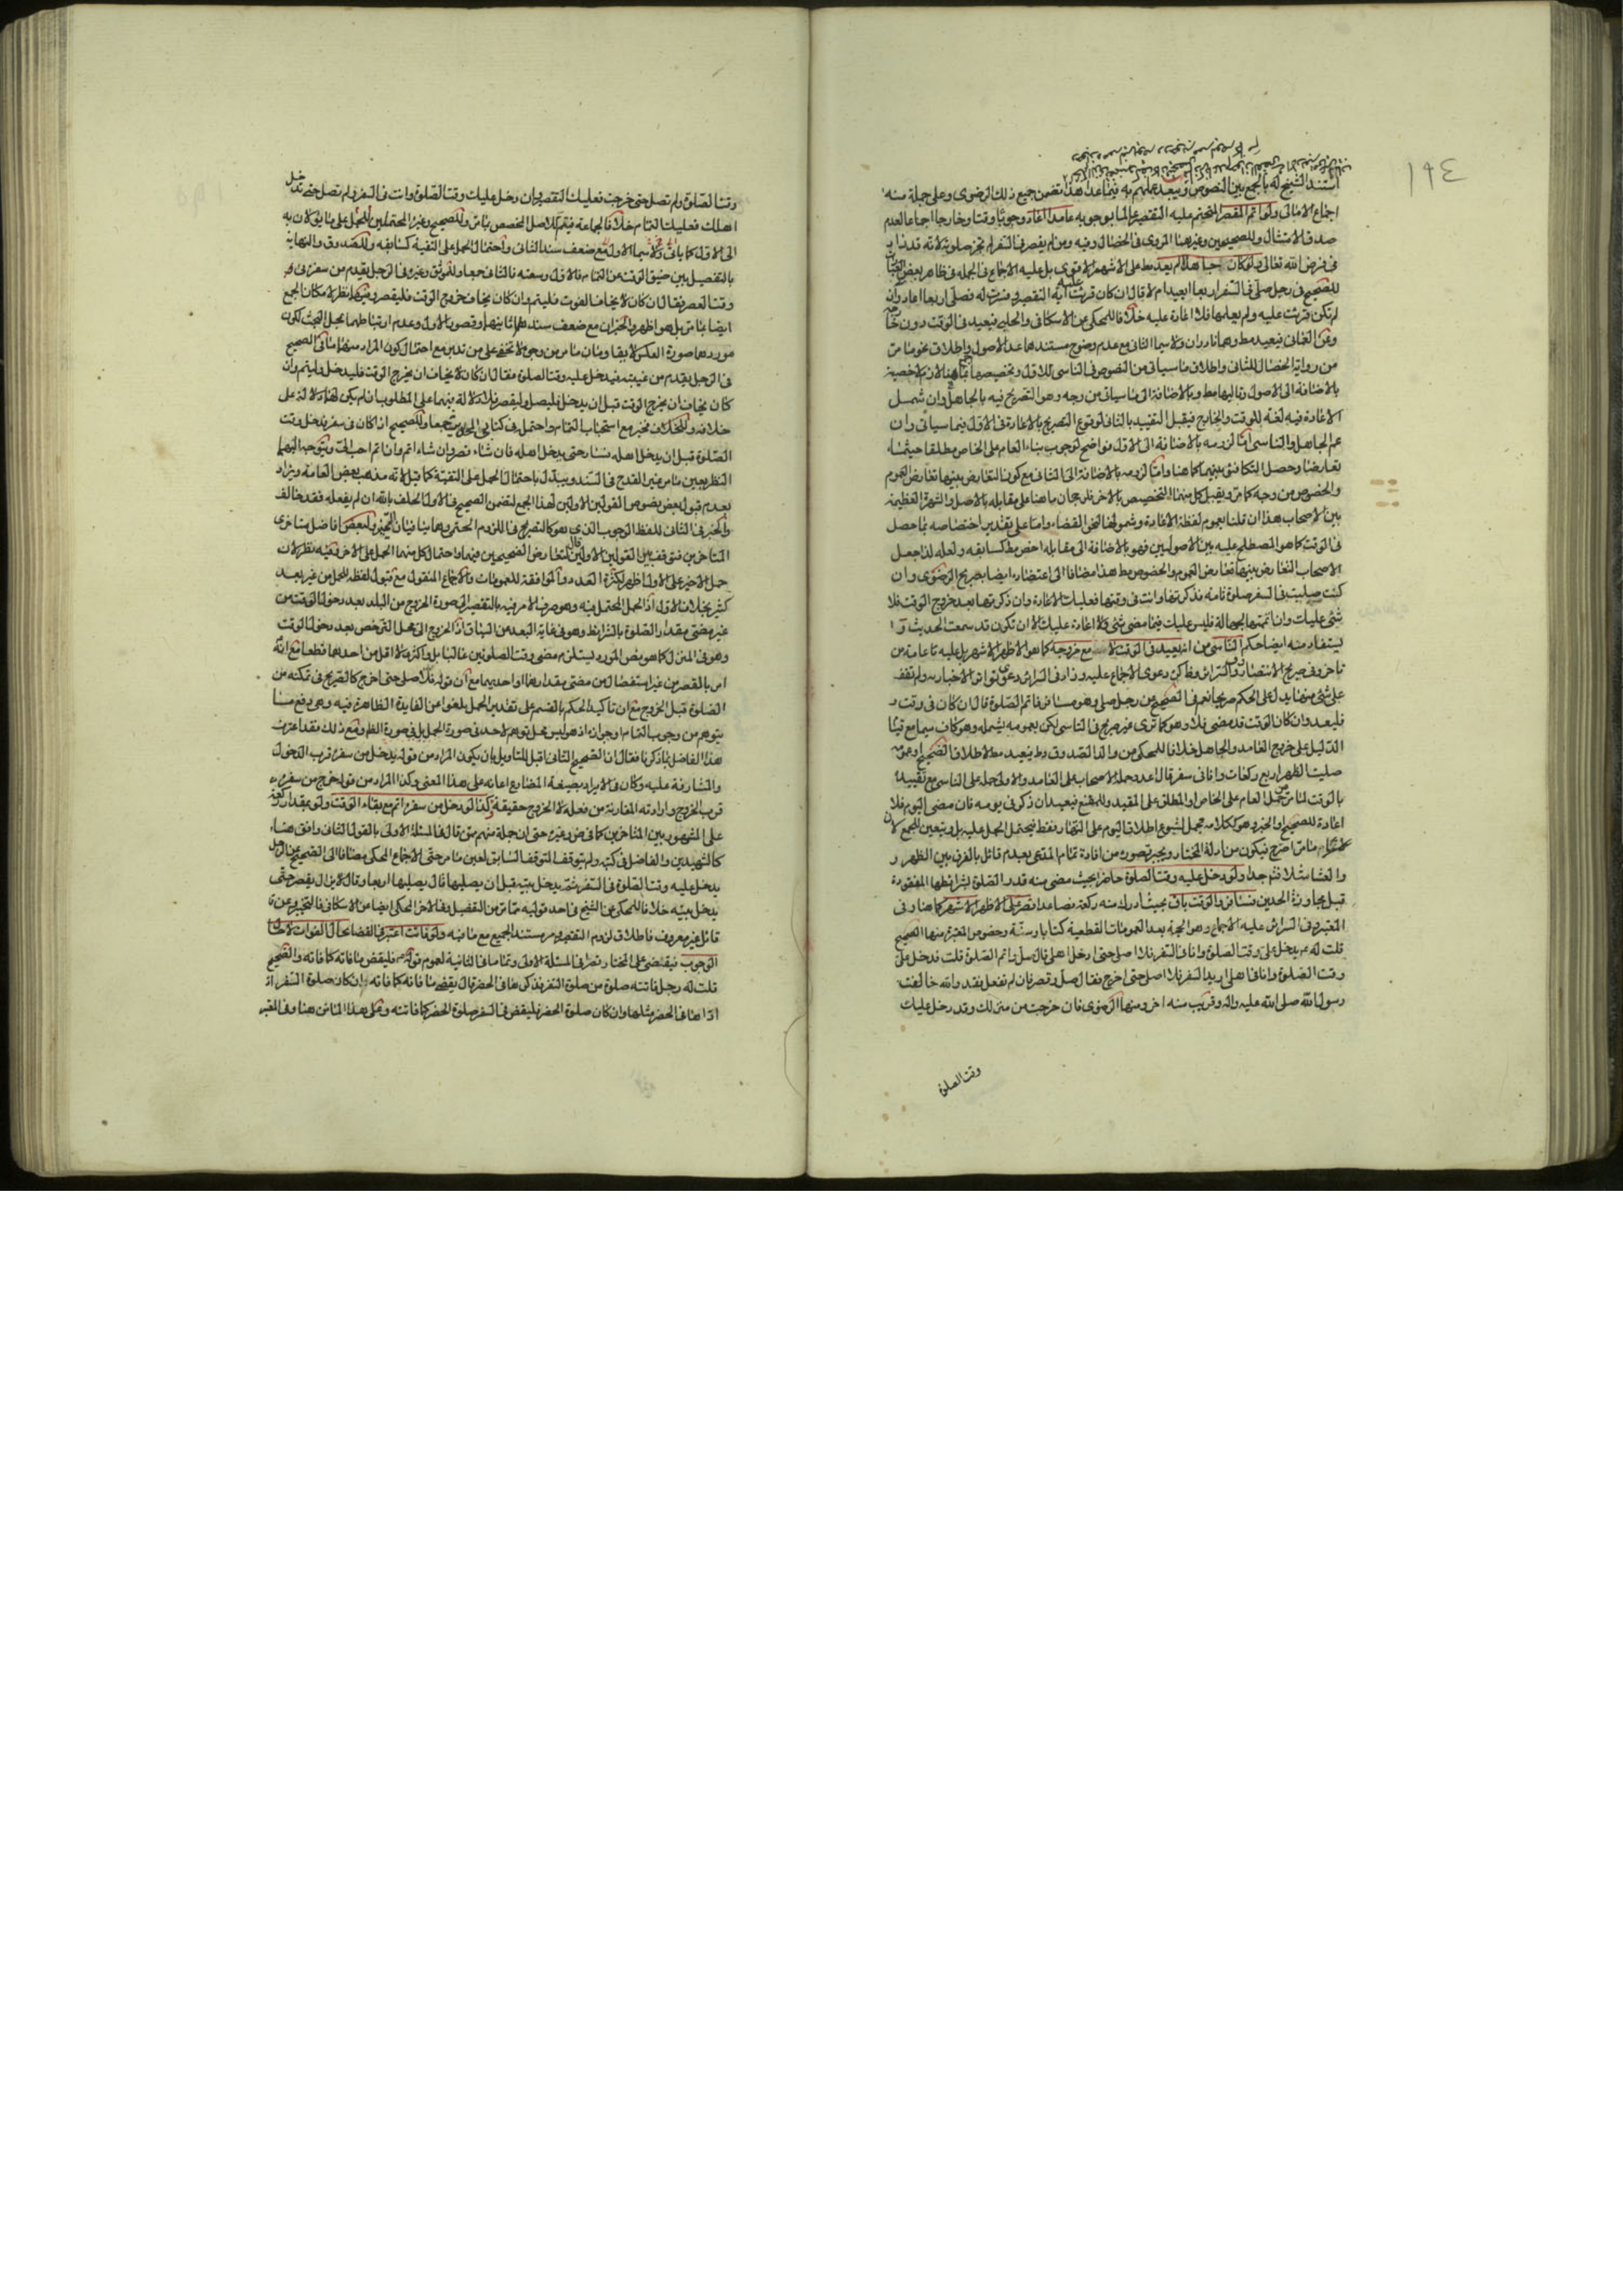 ١٩٤
استند الشيخ له بالجمع بين النصوص ويبعد علمهم به فيما عدا هذا تضمن جميع ذلك الرضوي وعلى جملة منه
اجماع الامالى ولو اتم المقصر المتحتم عليه التقصير عالما بوجوبه عامدا اعاد وجوبا وقتا وخارجا اجماعا لعدم
صدق الامتثال وللصحيحين وغيرهما المروى فى الخصال وفيه ومن لم يقصر فى السفر لم تجز صلوته لانه قد زاد
فى فرض الله تعالى ولو كان جاهلا لم يعد مط على الاشهر الاقوى بل عليه الاجماع فى الجملة فى ظاهر بعض
للصحيح فى رجل صلى فى السفر اربعا ايعيد ام لا قال ان كان قرئت عليه آية التقصير وفسرت له فصلى اربعا اعاد وان
لم تكن قرئت عليه ولم يعلمها فلا اعادة عليه خلافا للمحكى عن الاسكافى والحلبى فيعيد فى الوقت دون
وعن العمانى فيعيد مط وهما نادران ولا سيما الثانى مع عدم وضوح مستندهما عدا الاصول واطلاق نحو ما مر
من رواية الخصال للثانى واطلاق ما سيأتى من النصوص فى الناسى للاول وتخصيصهما بما هنا لازم لاخصيته
بالاضافة الى الاصول وتاليها مط وبالاضافة الى ما سيأتى من وجه وهو التصريح فيه بالجاهل وان شمل
الاعادة فيه لغة للوقت والخارج فيقبل التقييد بالثانى لوقوع التصريح بالاعادة فى الاول فيما سيأتى وان
عم الجاهل والناسى اما لزومه بالاضافة الى الاول فواضح لوجوب بناء العام على الخاص مطلقا حيثما
تعارضا وحصل التكافؤ بينهما كما هنا واما لزومه بالاضافة الى الثانى مع كون التعارض بينهما تعارض العموم
والخصوص من وجه كما مر ويقبل كل منهما التخصيص بالاخر فلرجحان ما هنا على مقابله بالاصل والشهرة العظيمة
بين الاصحاب هذا ان قلنا بعموم لفظة الاعادة وشمولها لنحو القضاء واما على تقدير اختصاصه بما حصل
فى الوقت كما هو المصطلح عليه بين الاصوليين فهو بالاضافة الى مقابله اخص مط كسابقه ولعله لذا جعل
الاصحاب التعارض بينهما تعارض العموم والخصوص مط هذا مضافا الى اعتضاده ايضا بصريح الرضوى وان
كنت صليت فى السفر صلوة تامة فذكرتها وانت فى وقتها فعليك الاعادة وان ذكرتها بعد خروج الوقت فلا
شئ عليك وان اتممتها بجهالة فليس عليك فيما مضى شئ ولا اعادة عليك الا ان تكون قد سمعت الحديث
يستفاد منه ايضا حكم الناسى من انه يعيد فى الوقت لا مع خروجه كما هو الاظهر الاشهر بل عليه عامة من
تأخر وفى صريح الانتصار والسرائر وظاهر دعوى الاجماع عليه وزاد فى السرائر دعوى تواتر الاخبار به ولم نقف
على شئ منها يدل على الحكم صريحا نعم فى الصحيح عن رجل صلى وهو مسافر فاتم الصلوة قال ان كان فى وقت
فليعد وان كان الوقت قد مضى فلا وهو كما ترى غير صريح فى الناسى لكن بعمومه يشمله وهو كاف سيما مع قيام
الدليل على خروج العامد والجاهل خلافا للمحكى عن والد الصدوق وط فيعيد مط لاطلاق الصحيح او عمومه
صليت الظهر اربع ركعات وانا فى سفر قال اعد وحمله الاصحاب على العامد والاولى حمله على الناسى مع تقييده
بالوقت لما مر حمل العام على الخاص او المطلق على المقيد وللمقنع فيعيد ان ذكر فى يومه فان مضى اليوم فلا
اعادة للصحيح او الخبر وهو ككلامه محمل لشيوع اطلاق اليوم على النهار فقط فيحتمل الحمل عليه بل ويتعين للجمع
ما مر اصرح فيكون من ادلة المختار ويجبر قصوره من افادة تمام المدعى بعدم قائل بالفرق بين الظهر و
والعشاء ولو دخل عليه وقت الصلوة حاضرا بحيث مضى منه قدر الصلوة بشرائطها المفقودة
قبل مجاوزة الحدين فسافر والوقت باق بحيث ادرك منه ركعة فصاعدا قصر على الاظهر الاشهر كما هنا وفى
المعتبر وفى السرائر عليه الاجماع وهو الحجة بعد العمومات القطعية كتابا وسنة وخصوص المعتبرة منها الصحيح
قلت له ع يدخل على وقت الصلوة وانا فى السفر فلا اصلى حتى ادخل اهلى قال صل واتم الصلوة قلت فدخل على
وقت الصلوة وانا فى اهلى اريد السفر فلا اصلى حتى اخرج فقال صل وقصر فان لم تفعل فقد والله خالفت
رسول الله صلى الله عليه واله وقريب منه اخر ومنها الرضوى فان خرجت من منزلك وقد دخل عليك
وقت الصلوة
وقت الصلوة ولم تصل حتى خرجت فعليك التقصير وان دخل عليك وقت الصلوة وانت فى السفر ولم تصل حتى تدخل
اهلك فعليك التمام خلافا لجماعة فيتم للاصل المخصص بما مر وللصحيح وغيره المحتملين للحمل على ما يؤلان به
الى الاول كما يأتى ولا سيما الاول مع ضعف سند الثانى واحتمال الحمل على التقية كسابقه وللصدوق والنهاية
بالتفصيل بين ضيق الوقت عن التمام فالاول وسعته فالثانى جمعا وللموثق وغيره فى الرجل يقدم من سفره فى
وقت العصر فقال ان كان لا يخاف الفوت فليتم وان كان يخاف خروج الوقت فليقصر وفيهما نظر لامكان الجمع
ايضا بما مر بل هو اظهر والخبران مع ضعف سندهما وقصور الاول وعدم ارتباطهما بمحل البحث لكون
موردهما صورة العكس لا يقاومان ما مر من وجوه لا تخفى على من تدبر مع احتمال كون المراد منهما ما فى الصحيح
فى الرجل يقدم من غيبته فيدخل عليه وقت الصلوة فقال ان كان لا يخاف ان يخرج الوقت فليدخل وليتم وان
كان يخاف ان يخرج الوقت قبل ان يدخل فليصل وليقصر فلا دلالة فيهما على المطلوب ان لم يكن لهما دلالة على
خلافه وللخلاف فخير مع استحباب التمام واحتمل فى كتابى الحديث جمعا وللصحيح اذا كان فى سفر يدخل وقت
الصلوة قبل ان يدخل اهله فسار حتى يدخل اهله فان شاء قصر وان شاء اتم وان اتم احب الى ويتوجه اليهما
النظر بعين ما مر غير القدح فى السند ويبدل باحتمال الحمل على التقية كما قيل لانه مذهب بعض العامة ويزاد
بعدم قبول بعض نصوص القولين الاولين لهذا الجمع لتضمن الصحيح فى الاول الحلف بالله ان لم يفعله فقد خالف
والخبر فى الثانى للفظ الوجوب الذى هو كالتصريح فى اللزوم الحتمى وهما ينافيان التخيير ولبعض افاضل متأخرى
المتأخرين فتوقف بين القولين الاولين قال لتعارض الصحيحين فيهما واحتمال كل منهما الحمل على الاخر وفيه نظر لان
حمل الاخير على الاول اظهر لكثرة العدد والموافقة للعمومات والاجماع المنقول مع قبول لفظه للحمل من غير بعد
كثير بخلاف الاول اذ الحمل المحتمل فيه وهو صرف الامر فيه بالتقصير الى صورة الخروج من البلد بعد دخول الوقت من
غير مضى مقدار الصلوة بالشرائط وهو فى غاية البعد من السياق اذ الخروج الى محل الترخص بعد دخول الوقت
وهو فى المنزل كما هو نص المورد يستلزم مضى وقت الصلوتين غالبا بل واكثر ولا اقل من احدهما قطعا مع انه
امر بالقصر من غير استفصال عن مضى مقدارهما او احديهما مع ان قوله فلا اصلى حتى اخرج كالصريح فى تمكنه من
الصلوة قبل الخروج مع ان تأكيد الحكم بالقسم على تقدير الحمل يلغو اعن الفايدة الظاهرة فيه وهى دفع ما
يتوهم من وجوب التمام او جوازه اذ هو ليس محل توهم لاحد فى صورة الحمل بل فى صورة الظ ومع ذلك فقد اعترف
هذا الفاضل بما ذكرنا فقال ان الصحيح الثانى اقبل للتاويل بان يكون المراد من قوله يدخل من سفره قرب الدخول
والمشارفة عليه وكان الايراد بصيغة المضارع اعانة على هذا المعنى وكذا المراد من قوله خرج من سفره
قرب الخروج وارادته المقارنة من فعله لا الخروج حقيقة وكذا لو دخل من سفره اتم مع بقاء الوقت ولو بمقدار ركعة
على المشهور بين المتأخرين كما فى ض وغيره حتى ان جملة منهم ممن قال فى المسئلة الاولى بالقول الثانى وافق هنا
كالشهيدين والفاضل فى كتبه ولم يتوقف المتوقف السابق لعين ما مر حتى الاجماع المحكى مضافا الى الصحيح عن الرجل
يدخل عليه وقت الصلوة فى السفر ثم يدخل بيته قبل ان يصليها قال يصليها اربعا وقال لا يزال يقصر حتى
يدخل بيته خلافا للمحكى عن الشيخ فى احد قوليه مما مر من التفصيل وفى الاخر المحكى ايضا عن الاسكافى فالتخيير وعن
قائل غير معروف فاطلاق لزوم التقصير ومر مستند الجميع مع ما فيه ولو فاتت اعتبر فى القضا بحال الفوات لا حال
الوجوب فيقضى على المختار قصرا فى المسئلة الاولى وتماما فى الثانية لعموم قوله ع فليقض ما فاته كما فاته والصحيح
قلت له رجل فاتته صلوة من صلوة السفر فذكرها فى الحضر قال يقضى ما فاته كما فاته ان كان صلوة السفر اد
اداها فى الحضر مثلها وان كان صلوة الحضر فليقض فى السفر صلوة الحضر كما فاتته وعلى هذا المتأخرون هنا وفى المعتبر